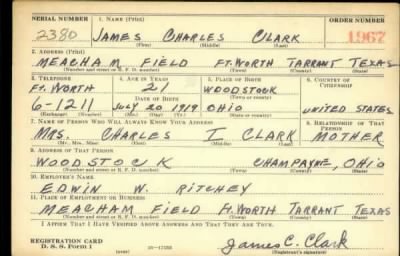 SERIAL NUMBER 1. NAME (Print) ORDER NUMBER
2380 JAMES CHARLES CLARK 1967
(First) (Middle) (Last)
2. ADDRESS (Print)
MEACHAM FIELD FT. WORTH TARRANT TEXAS
(Number and street or R. F. D. number) (Town) (County) (State)
3. TELEPHONE 4. AGE IN YEARS 5. PLACE OF BIRTH 6. COUNTRY OF CITIZENSHIP
FT. WORTH 21 WOODSTOCK
DATE OF BIRTH (Town or county)
6-1211 JULY 20 1919 OHIO UNITED STATES
(Exchange) (Number) (Mo.) (Day) (Yr.) (State or country)
7. NAME OF PERSON WHO WILL ALWAYS KNOW YOUR ADDRESS 8. RELATIONSHIP OF THAT PERSON
MRS. CHARLES I CLARK MOTHER
(Mr., Mrs., Miss) (First) (Middle) (Last)
9. ADDRESS OF THAT PERSON
WOODSTOCK CHAMPAYNE, OHIO
(Number and street or R. F. D. number) (Town) (County) (State)
10. EMPLOYER'S NAME
EDWIN W. RITCHEY
11. PLACE OF EMPLOYMENT OR BUSINESS
MEACHAM FIELD FT. WORTH TARRANT TEXAS
(Number and street or R. F. D. number) (Town) (County) (State)
I AFFIRM THAT I HAVE VERIFIED ABOVE ANSWERS AND THAT THEY ARE TRUE.
REGISTRATION CARD
D. S. S. Form 1 (over) James C. Clark
(Registrant's signature)